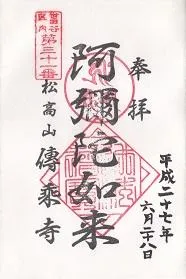 奉拝
平成二十七年
六月二十八日
阿彌陀如来
世田谷
区内
第三十一番
松高山 傳乗寺